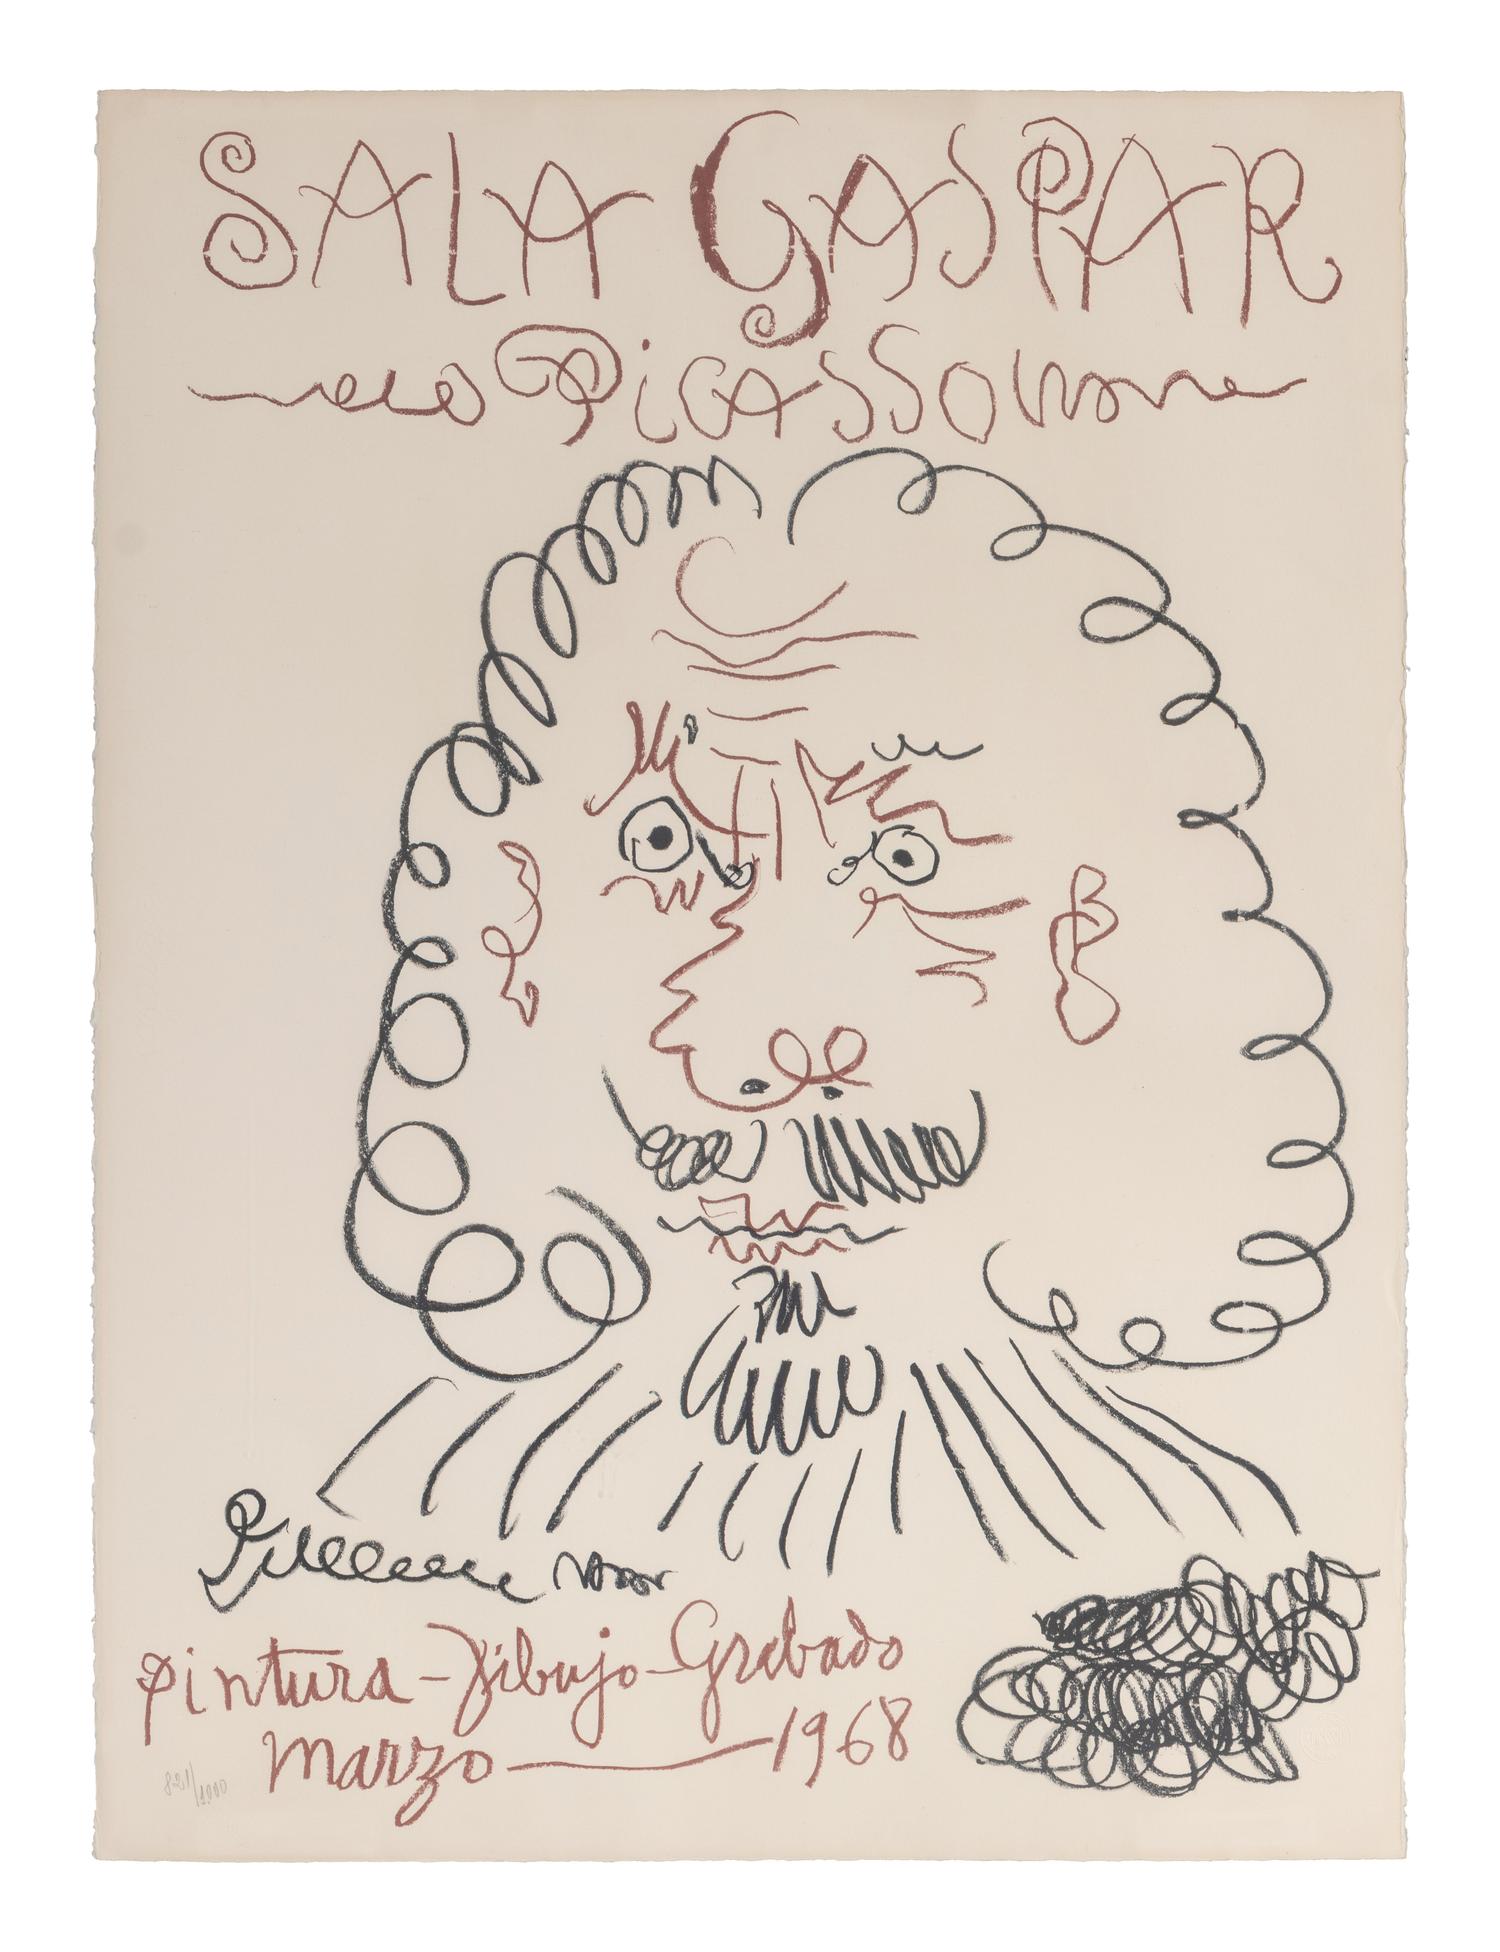 SALA GASPAR
Picasso
pintura - Dibujo - Grabado
marzo — 1968
821/1000